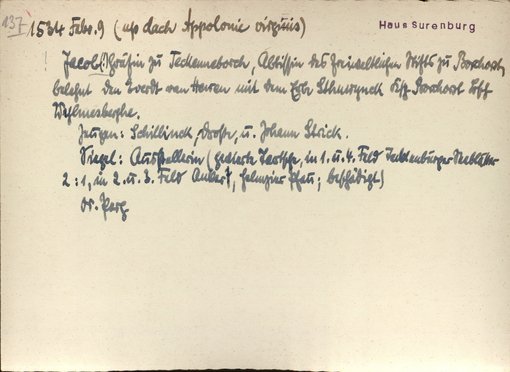 137 1534 Febr. 9 (up dach Appolonie virginis)
Haus Surenburg
Jacoba (!) Gräfin zu Teckenneborch, Äbtissin des freiweltlichen Stifts zu Borchorst,
belehnt den Everdt van Haren mit dem Erbe Ksp. Borchorst
Zeugen: Schillinck, Droste, u. Johann Strick.
Siegel: Ausstellerin (gevierte Tartsche, in 1. u. 4. Feld Tecklenburger Seeblätter
2:1, in 2. u. 3. Feld Anker, Helmzier Pfau; beschädigt)
Or. Perg.